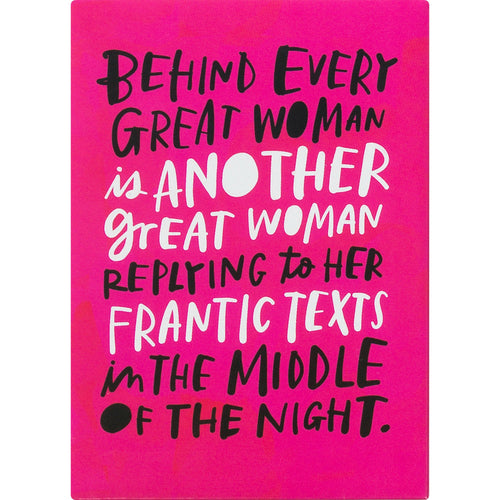 BEHIND EVERY
GREAT WOMAN
is ANOTHER
greAT WOMAN
REPLYING to HER
FRANTIC TEXTS
in THE MIDDLE
OF THE NIGHT.